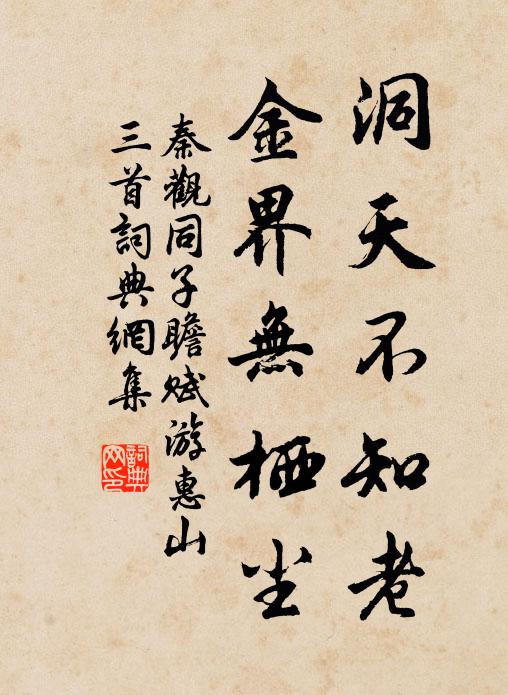 洞天不知老
金界無栖尘
秦觀同子瞻赋游惠山
三首詞典網集
詞典
网印